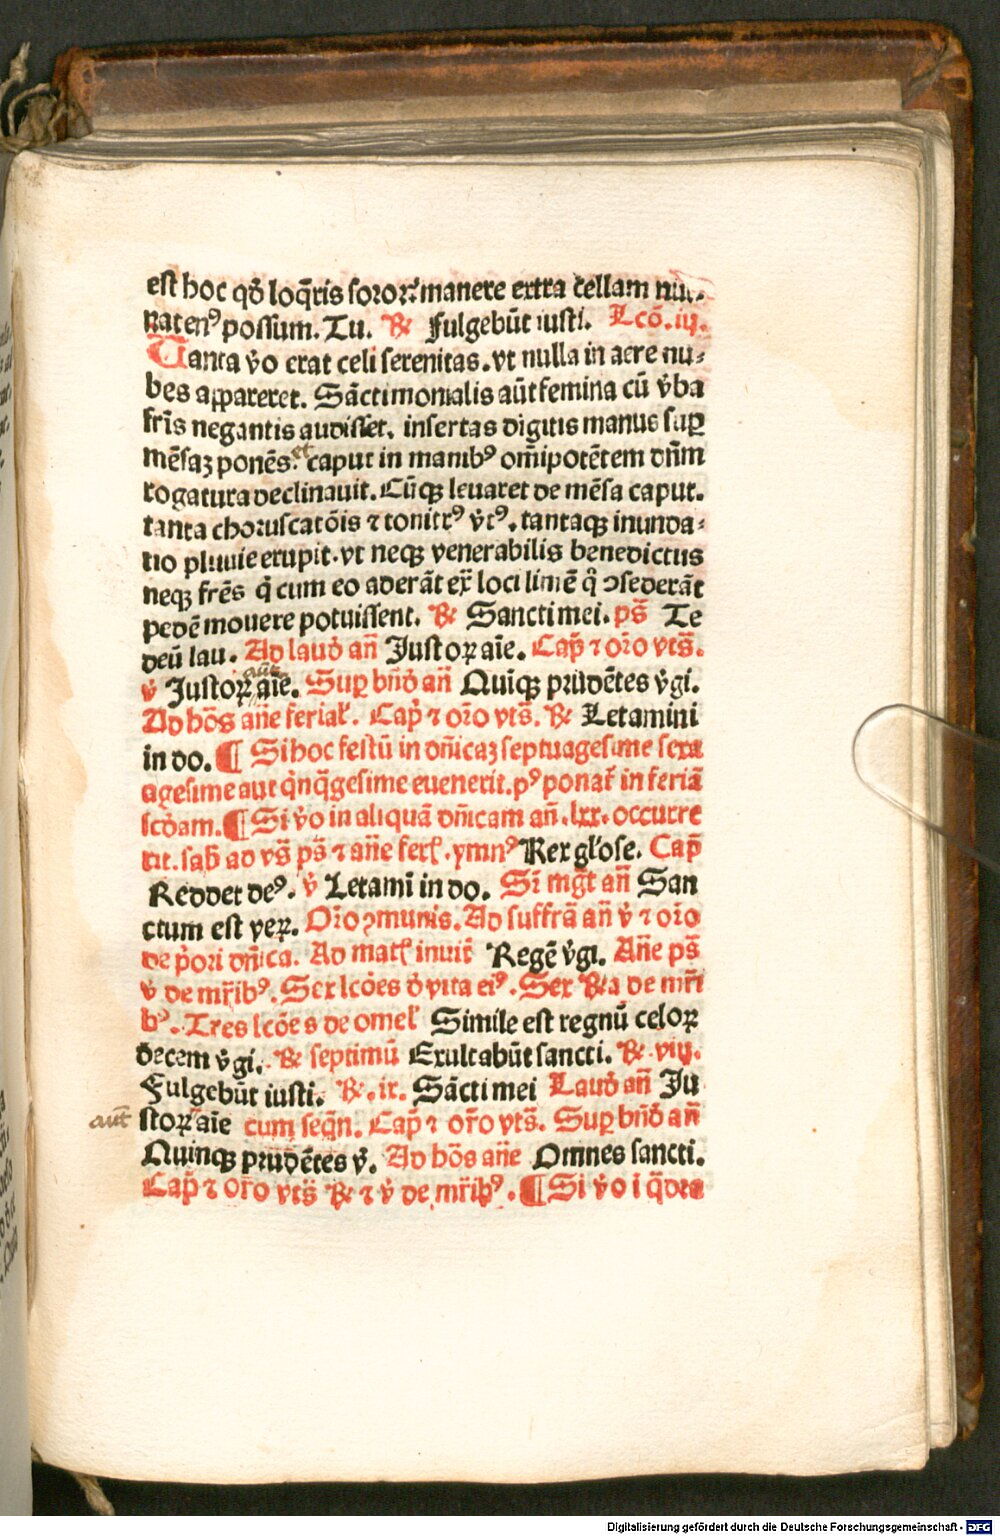 est hoc qḋ loq̄ris soror:ꝰ manere extra cellam nul-
latenꝰ possum. Tu. ℟ Fulgebūt iusti. Lcō. iij.
Tanta v̇o erat celi serenitas. vt nulla in aere nu-
bes appareret. Sācti monialis aūt femina cū v̇ba
fr̄is negantis audisset. insertas digitis manus suꝑ
mēsaꝫ ponēs. et caput in manibꝰ om̄ipotētem dn̄m
rogatura declinauit. Cūqꝫ leuaret de mēsa caput.
tanta choruscatōis ⁊ tonitrꝰ v̇tꝰ. tantaqꝫ inunda-
tio pluuie erupit. vt neqꝫ venerabilis benedictus
neqꝫ frēs q̇ cum eo aderāt ex̄ loci limē q̊ ꝯsederāt
pedē mouere potuissent. ℟ Sancti mei. ps̄ Te
deū lau. Ad laud̉ an̄ Justoꝝ aīe. Cap̄ ⁊ or̄o vts̄.
aūt
v̇ Justoꝝ aīe. Suꝑ bn̄d̉ an̄ Quīqꝫ prudētes v̇gi.
Ad hōs an̄e ferial̉. Cap̉ ⁊ oīo vts̄. ℟ Letamini
in do. ¶ Si hoc festū in dn̄icaꝫ septuagesime sexa
agesime aut q̇nq̄gesime euenerit. pꝰponat̉ in feriā
scd̉am. ¶ Si v̇o in aliquā dn̄icam an̄. lxx. occurre
rit. sab̉ ad vs̄ ps̄ ⁊ an̄e ferl̉. ymnꝰ Rex gl̉ose. Cap̄
Reddet deꝰ. v̇ Letamī in do. Sr̄ mḡt an̄ San
ctum est veꝝ. Or̄o ꝯmunis. Ad suffrā an̄ v̇ ⁊ or̄o
de p̉ori dn̄ica. Ad mat̉ inuit̄ Regē v̇gi. An̄e ps̄
v̇ de mr̄ibꝰ. Sex lcōes d̉ vita eiꝰ. Sex ℟a de mr̄i
bꝰ. Tres lcōes de omel̉ Simile est regnū celoꝝ
decem v̇gi. ℟ septimū Exultabūt sancti. ℟ . viij.
Fulgebūt iusti. ℟ . ix. Sācti mei Laud̉ an̄ Ju
aut̄ stoꝝ aīe cum seq̄n. Cap̄ ⁊ or̄o vts̄. Suꝑ bn̄d̉ an̄
Quinqꝫ prudētes v̇. Ad hōs an̄e Omnes sancti.
Cap̄ ⁊ or̄o vts̄ ℟ ⁊ v̇ de mr̄ibꝰ. ¶ Si v̇o i q̄dra
Digitalisierung gefördert durch die Deutsche Forschungsgemeinschaft - DFG